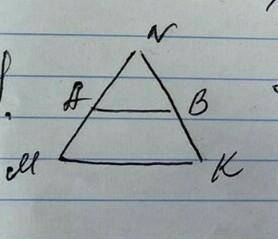 N
A B
M K